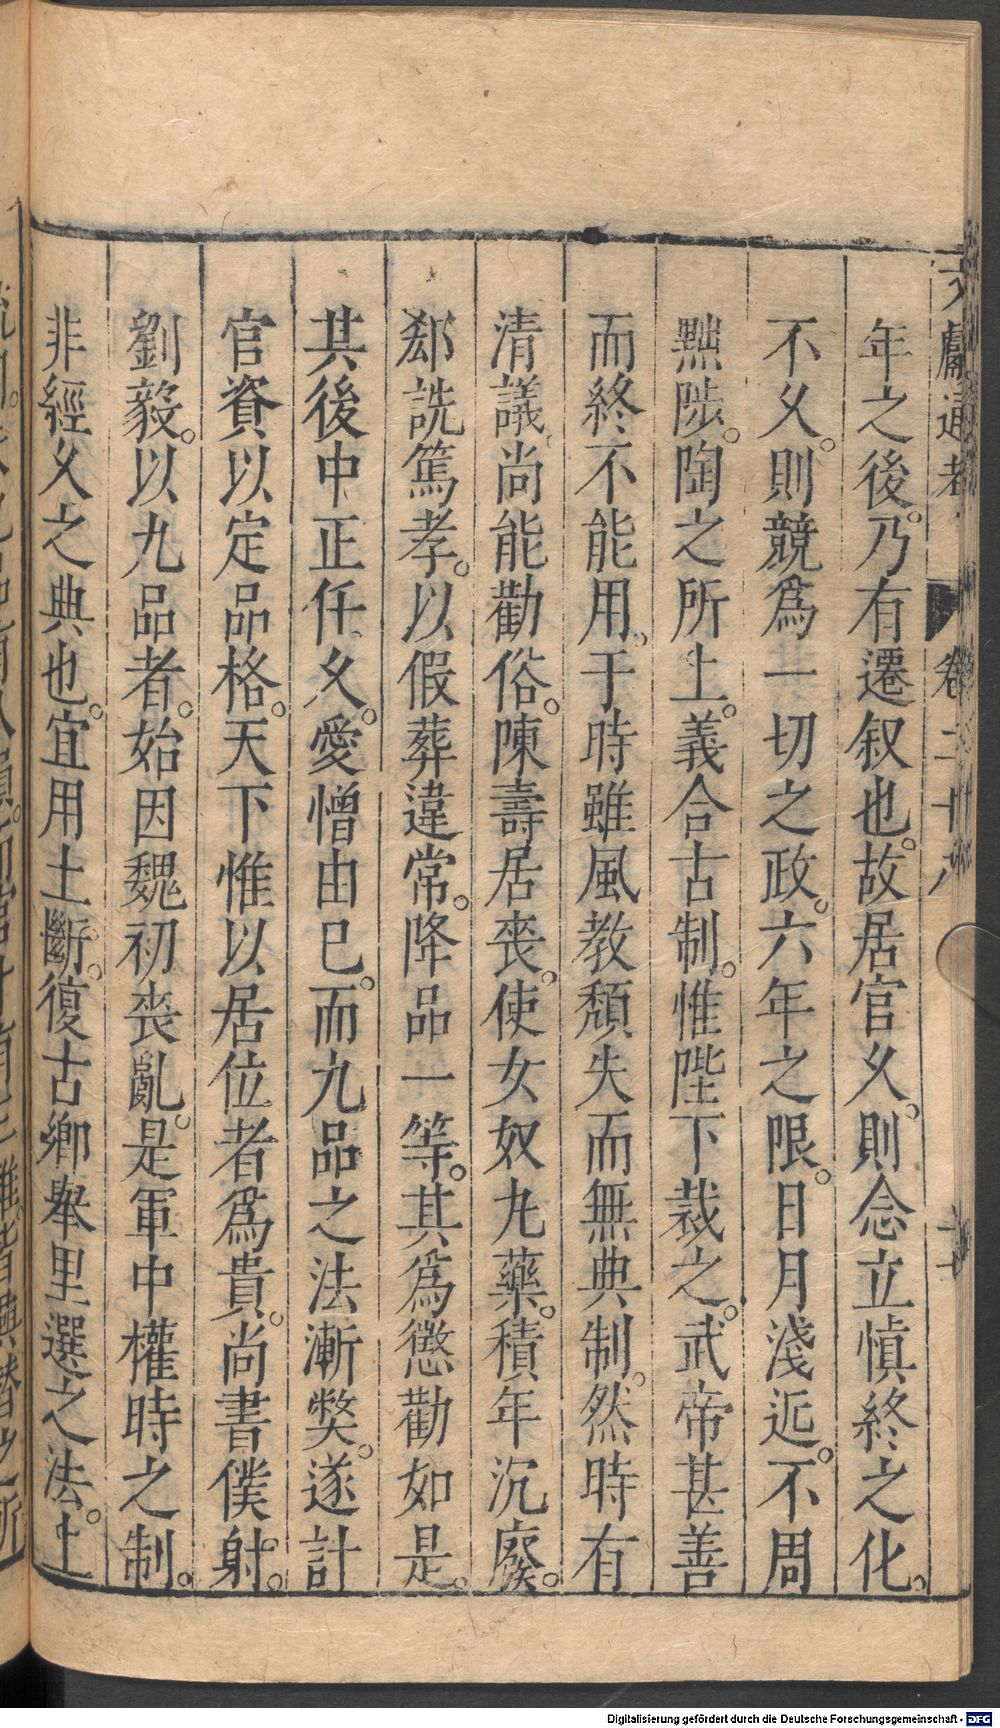 文獻通考 卷二十八
年之後。乃有遷叙也。故居官久。則念立慎終之化。
不久。則競爲一切之政。六年之限。日月淺近。不周
黜陟。陶之所上。義合古制。惟陛下裁之。武帝甚善
而終不能用。于時雖風教頹失而無典制。然時有
清議。尚能勸俗。陳壽居喪。使女奴丸藥。積年沉廢。
郄詵篤孝。以假葬違常。降品一等。其爲懲勸如是。
其後中正任久。愛憎由已。而九品之法漸獘。遂計
官資以定品格。天下惟以居位者爲貴。尚書僕射。
劉毅。以九品者。始因魏初喪亂。是軍中權時之制。
非經久之典也。宜用土斷。復古鄉舉里選之法。上
Digitalisierung gefördert durch die Deutsche Forschungsgemeinschaft - DFG